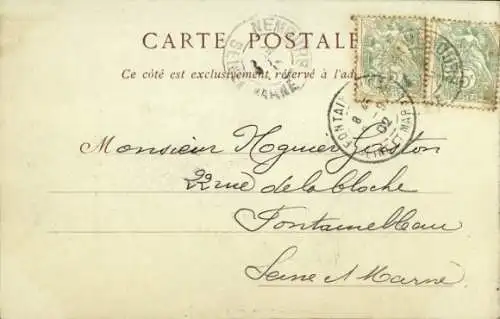 CARTE POSTALE
Ce côté est exclusivement réservé à l'adr
NEMOURS
SEINE MARNE
FONTAI
8
9
02
ET MAR
Monsieur Gaston
22 rue de la Cloche
Fontainebleau
Seine et Marne